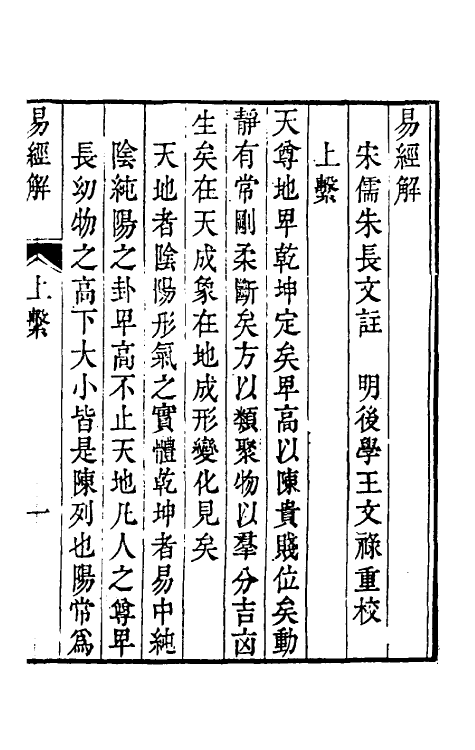 易經解
宋儒朱長文註　明後學王文祿重校
上繫
天尊地卑乾坤定矣卑高以陳貴賤位矣動
靜有常剛柔斷矣方以類聚物以羣分吉凶
生矣在天成象在地成形變化見矣
天地者陰陽形氣之實體乾坤者易中純
陰純陽之卦卑高不止天地凡人之尊卑
長幼物之高下大小皆是陳列也陽常爲
易經解　上繫　一